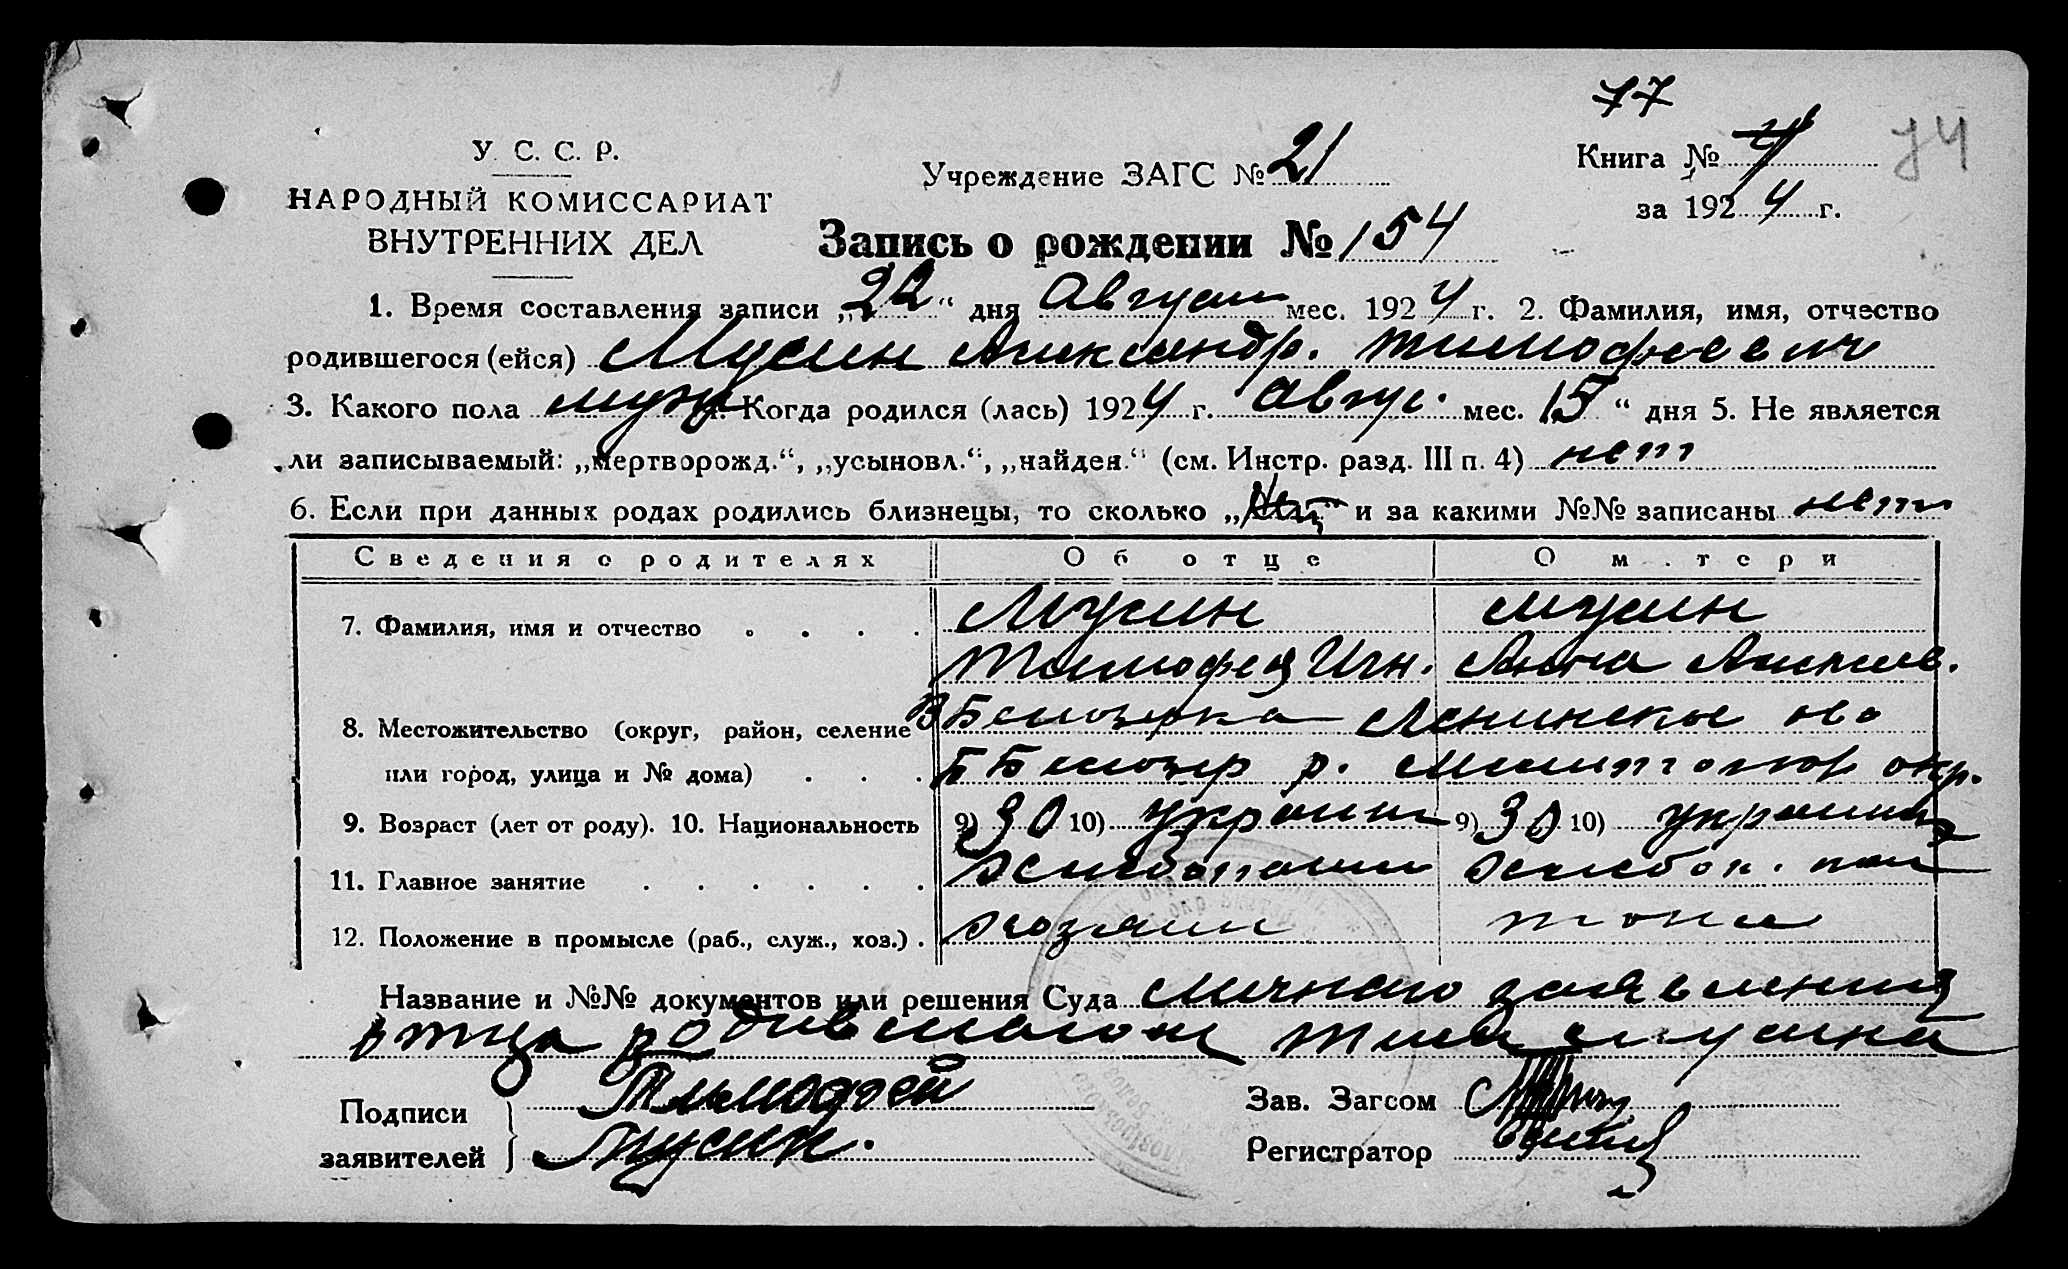 77
У. С. С. Р.
Учреждение ЗАГС № 21
Книга № 4
74
НАРОДНЫЙ КОМИССАРИАТ
за 1924 г.
ВНУТРЕННИХ ДЕЛ
Запись о рождении № 154
1. Время составления записи „22“ дня Август мес. 1924 г. 2. Фамилия, имя, отчество
родившегося (ейся) Мусин Александр. Тимофеевич
3. Какого пола муж 4. Когда родился (лась) 1924 г. Авгус. мес. 15 “ дня 5. Не является
ли записываемый: „мертворожд.“, „усыновл.“, „найден.“ (см. Инстр. разд. III п. 4) нет
6. Если при данных родах родились близнецы, то сколько „нет“ и за какими №№ записаны нет
Сведения о родителях Об отце О м.тери
7. Фамилия, имя и отчество Мусин Мусин
Тимофей Игн. Анна
8. Местожительство (округ, район, селение В Белозерка Ленинское
или город, улица и № дома) Б Белозер р. Мелитопол окр.
9. Возраст (лет от роду). 10. Национальность 9) 30 10) украин 9) 30 10) украин
11. Главное занятие Хлебопашец Хлебоп.
12. Положение в промысле (раб., служ., хоз.) хозяин жена
Название и №№ документов или решения Суда личного заявления
отца родившагося Тим Мусина
Подписи заявителей Тимофей
Мусин.
Зав. Загсом
Регистратор